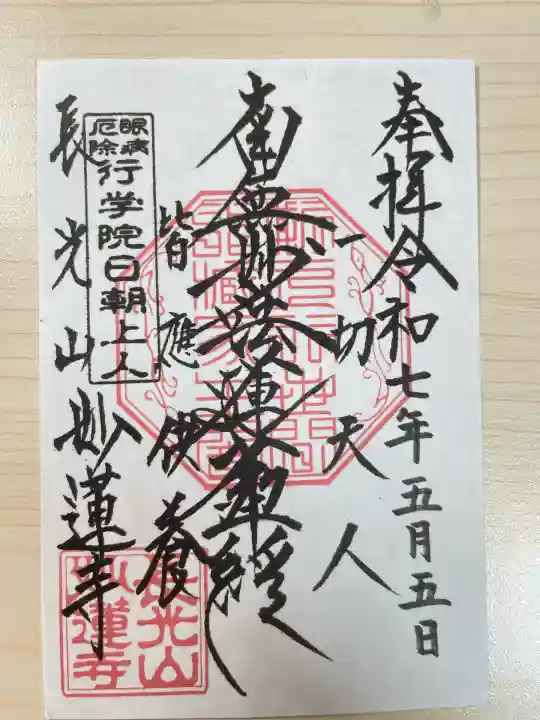 奉拝 令和七年五月五日
一切天人
南無妙法蓮華経
皆應供養
眼病
厄除
行学院日朝上人
長光山妙蓮寺
長光山
妙蓮寺